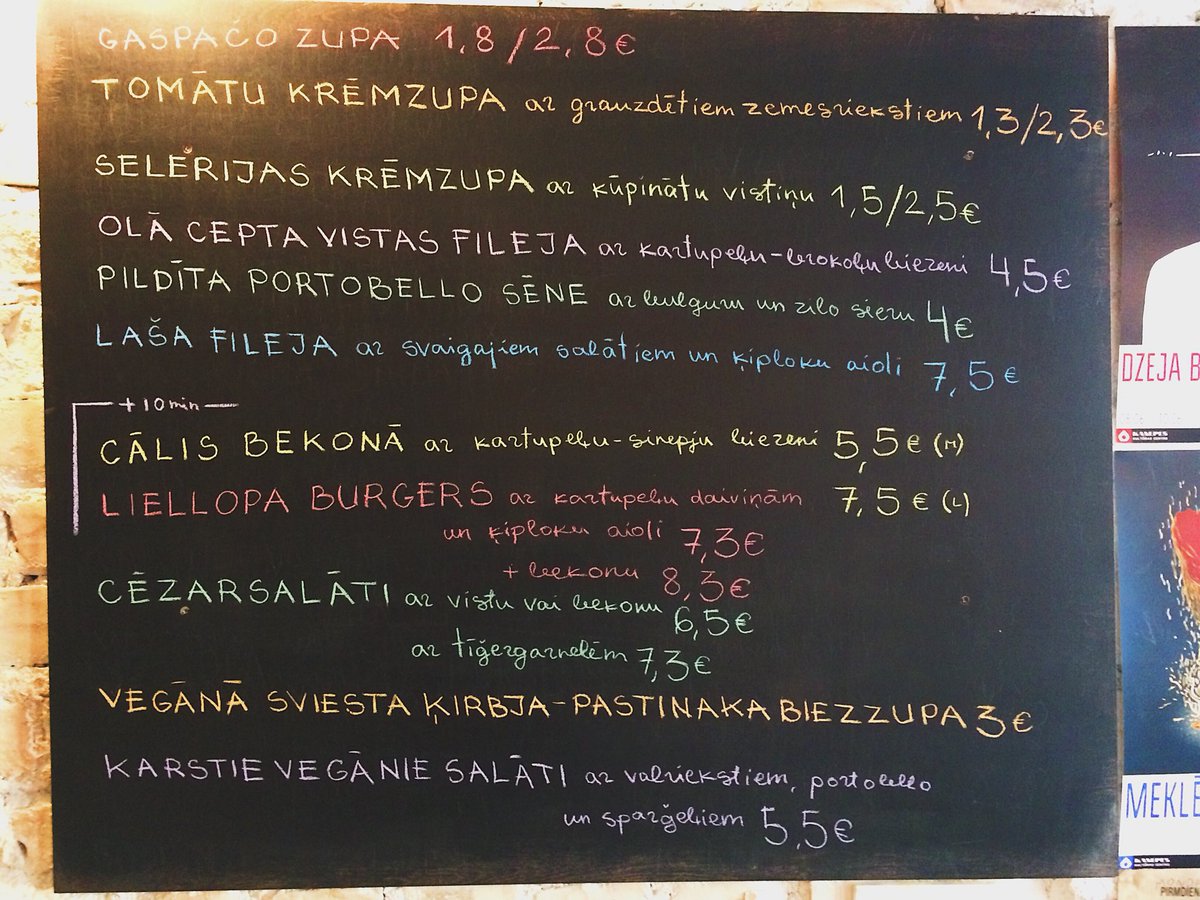 GASPAČO ZUPA 1,8/2,8€
TOMĀTU KRĒMZUPA ar grauzdētiem zemesriekstiem 1,3/2,3€
SELERIJAS KRĒMZUPA ar kūpinātu vistiņu 1,5/2,5€
OLĀ CEPTA VISTAS FILEJA ar kartupeļu-brokoļu biezeni 4,5€
PILDĪTA PORTOBELLO SĒNE ar bulguru un zilo sieru 4€
LAŠA FILEJA ar svaigajiem salātiem un ķiploku aioli 7,5€
+10min
CĀLIS BEKONĀ ar kartupeļu-sinepju biezeni 5,5€ (M)
7,5€ (L)
LIELLOPA BURGERS ar kartupeļu daiviņām
un ķiploku aioli 7,3€
+ bekonu 8,3€
CĒZARSALĀTI ar vistu vai bekonu 6,5€
ar tīģergarnelēm 7,3€
VEGĀNĀ SVIESTA ĶIRBJA-PASTINAKA BIEZZUPA 3€
KARSTIE VEGĀNIE SALĀTI ar valriekstiem, portobello
un sparģeļiem 5,5€
DZEJA B
KAŅEPES
MEKLĒ
KAŅEPES
PIRMDIEN